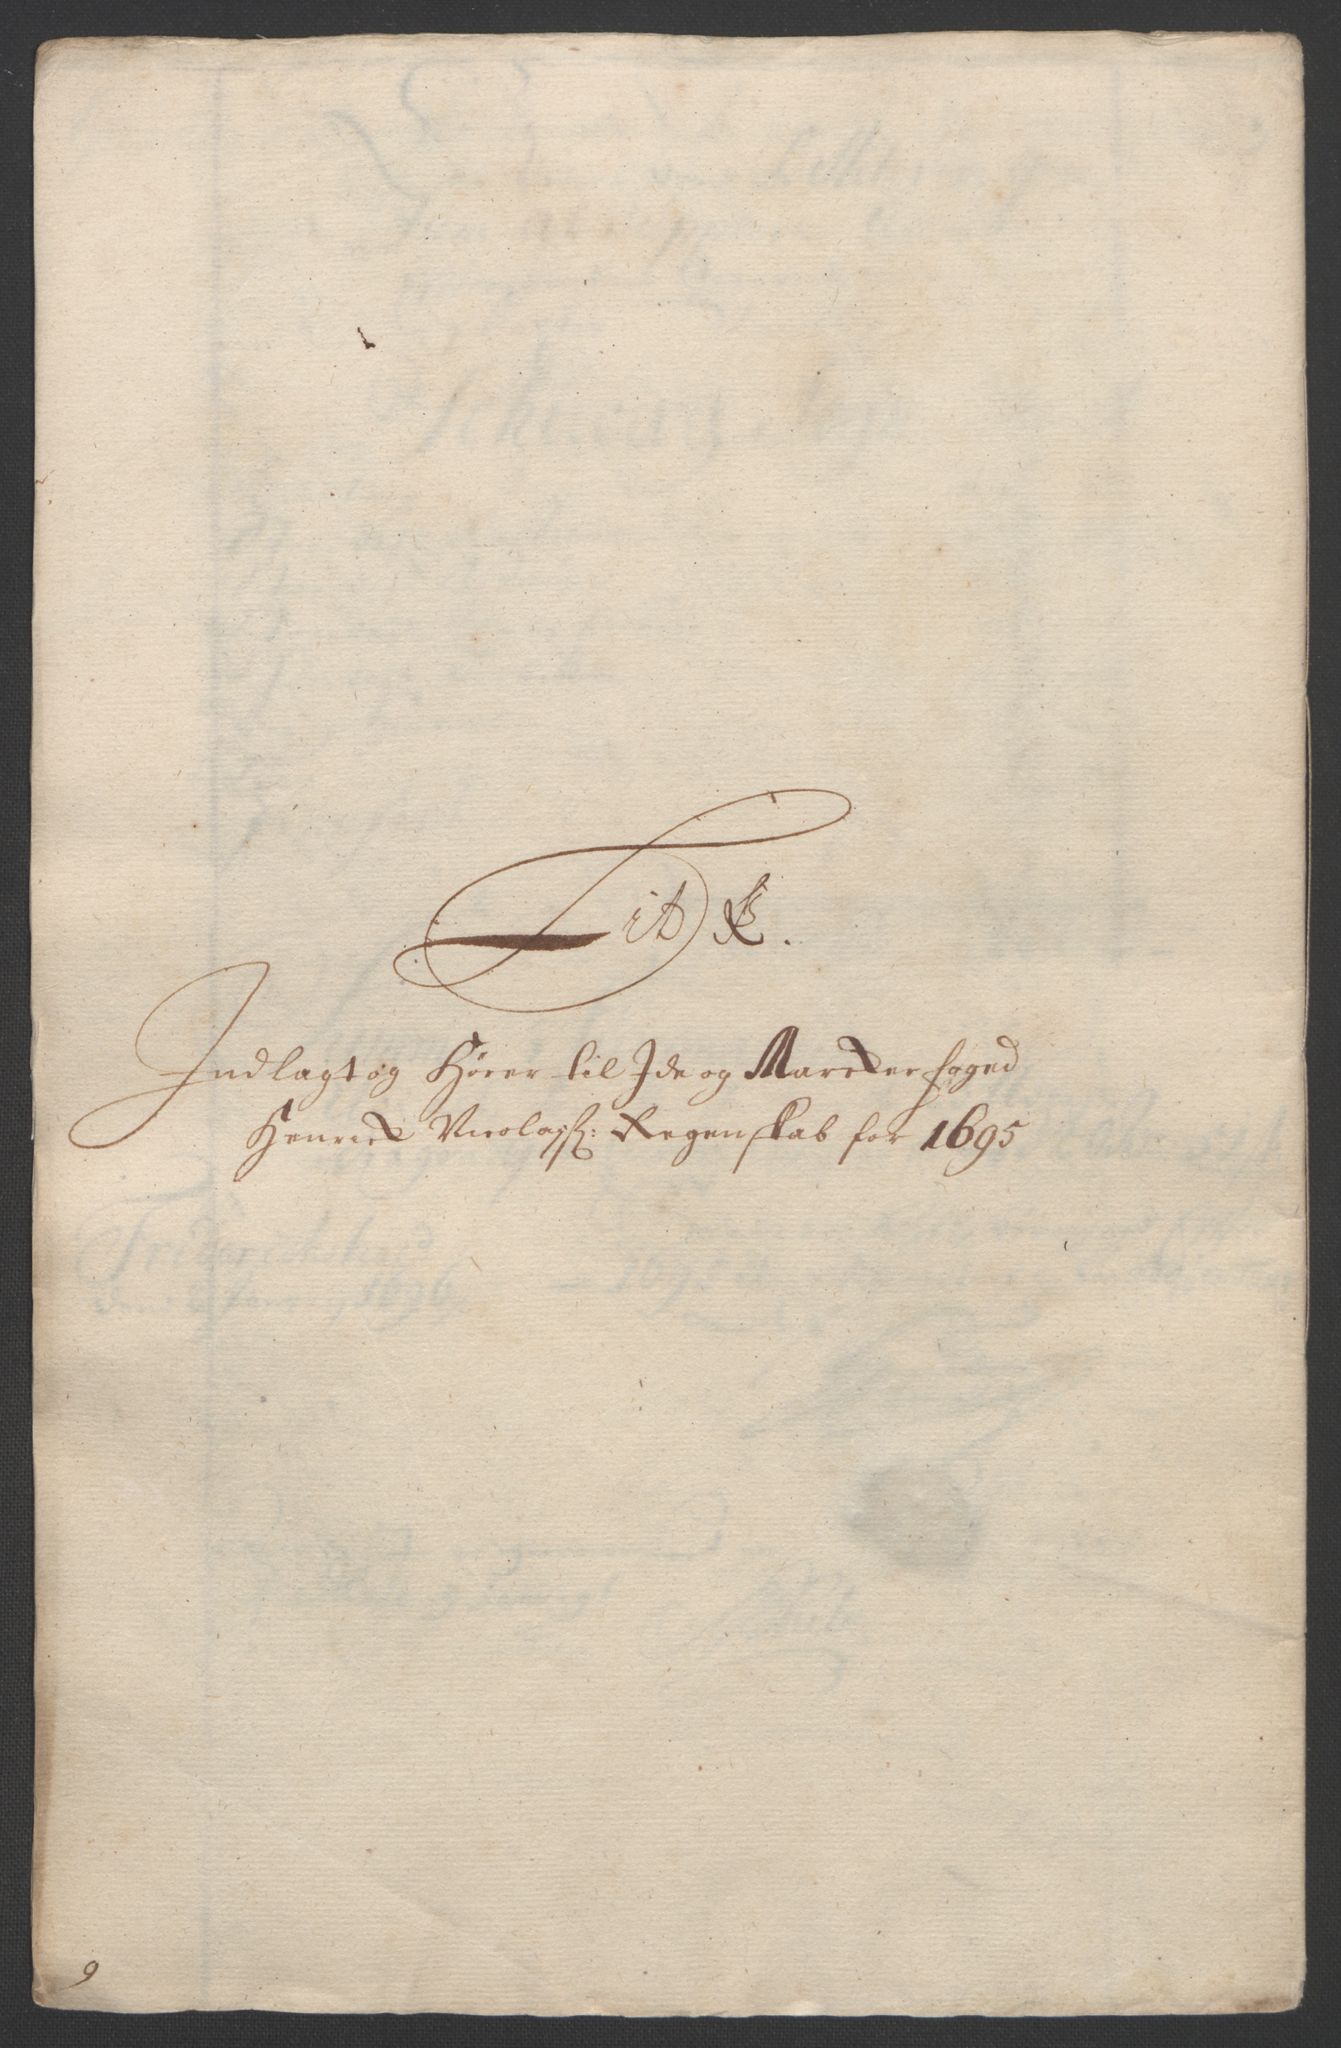 Lit K.
Indlagt og Hører til Ide og Marcker foged
Henrick Nicolajsø: Regenskab for 1695
9